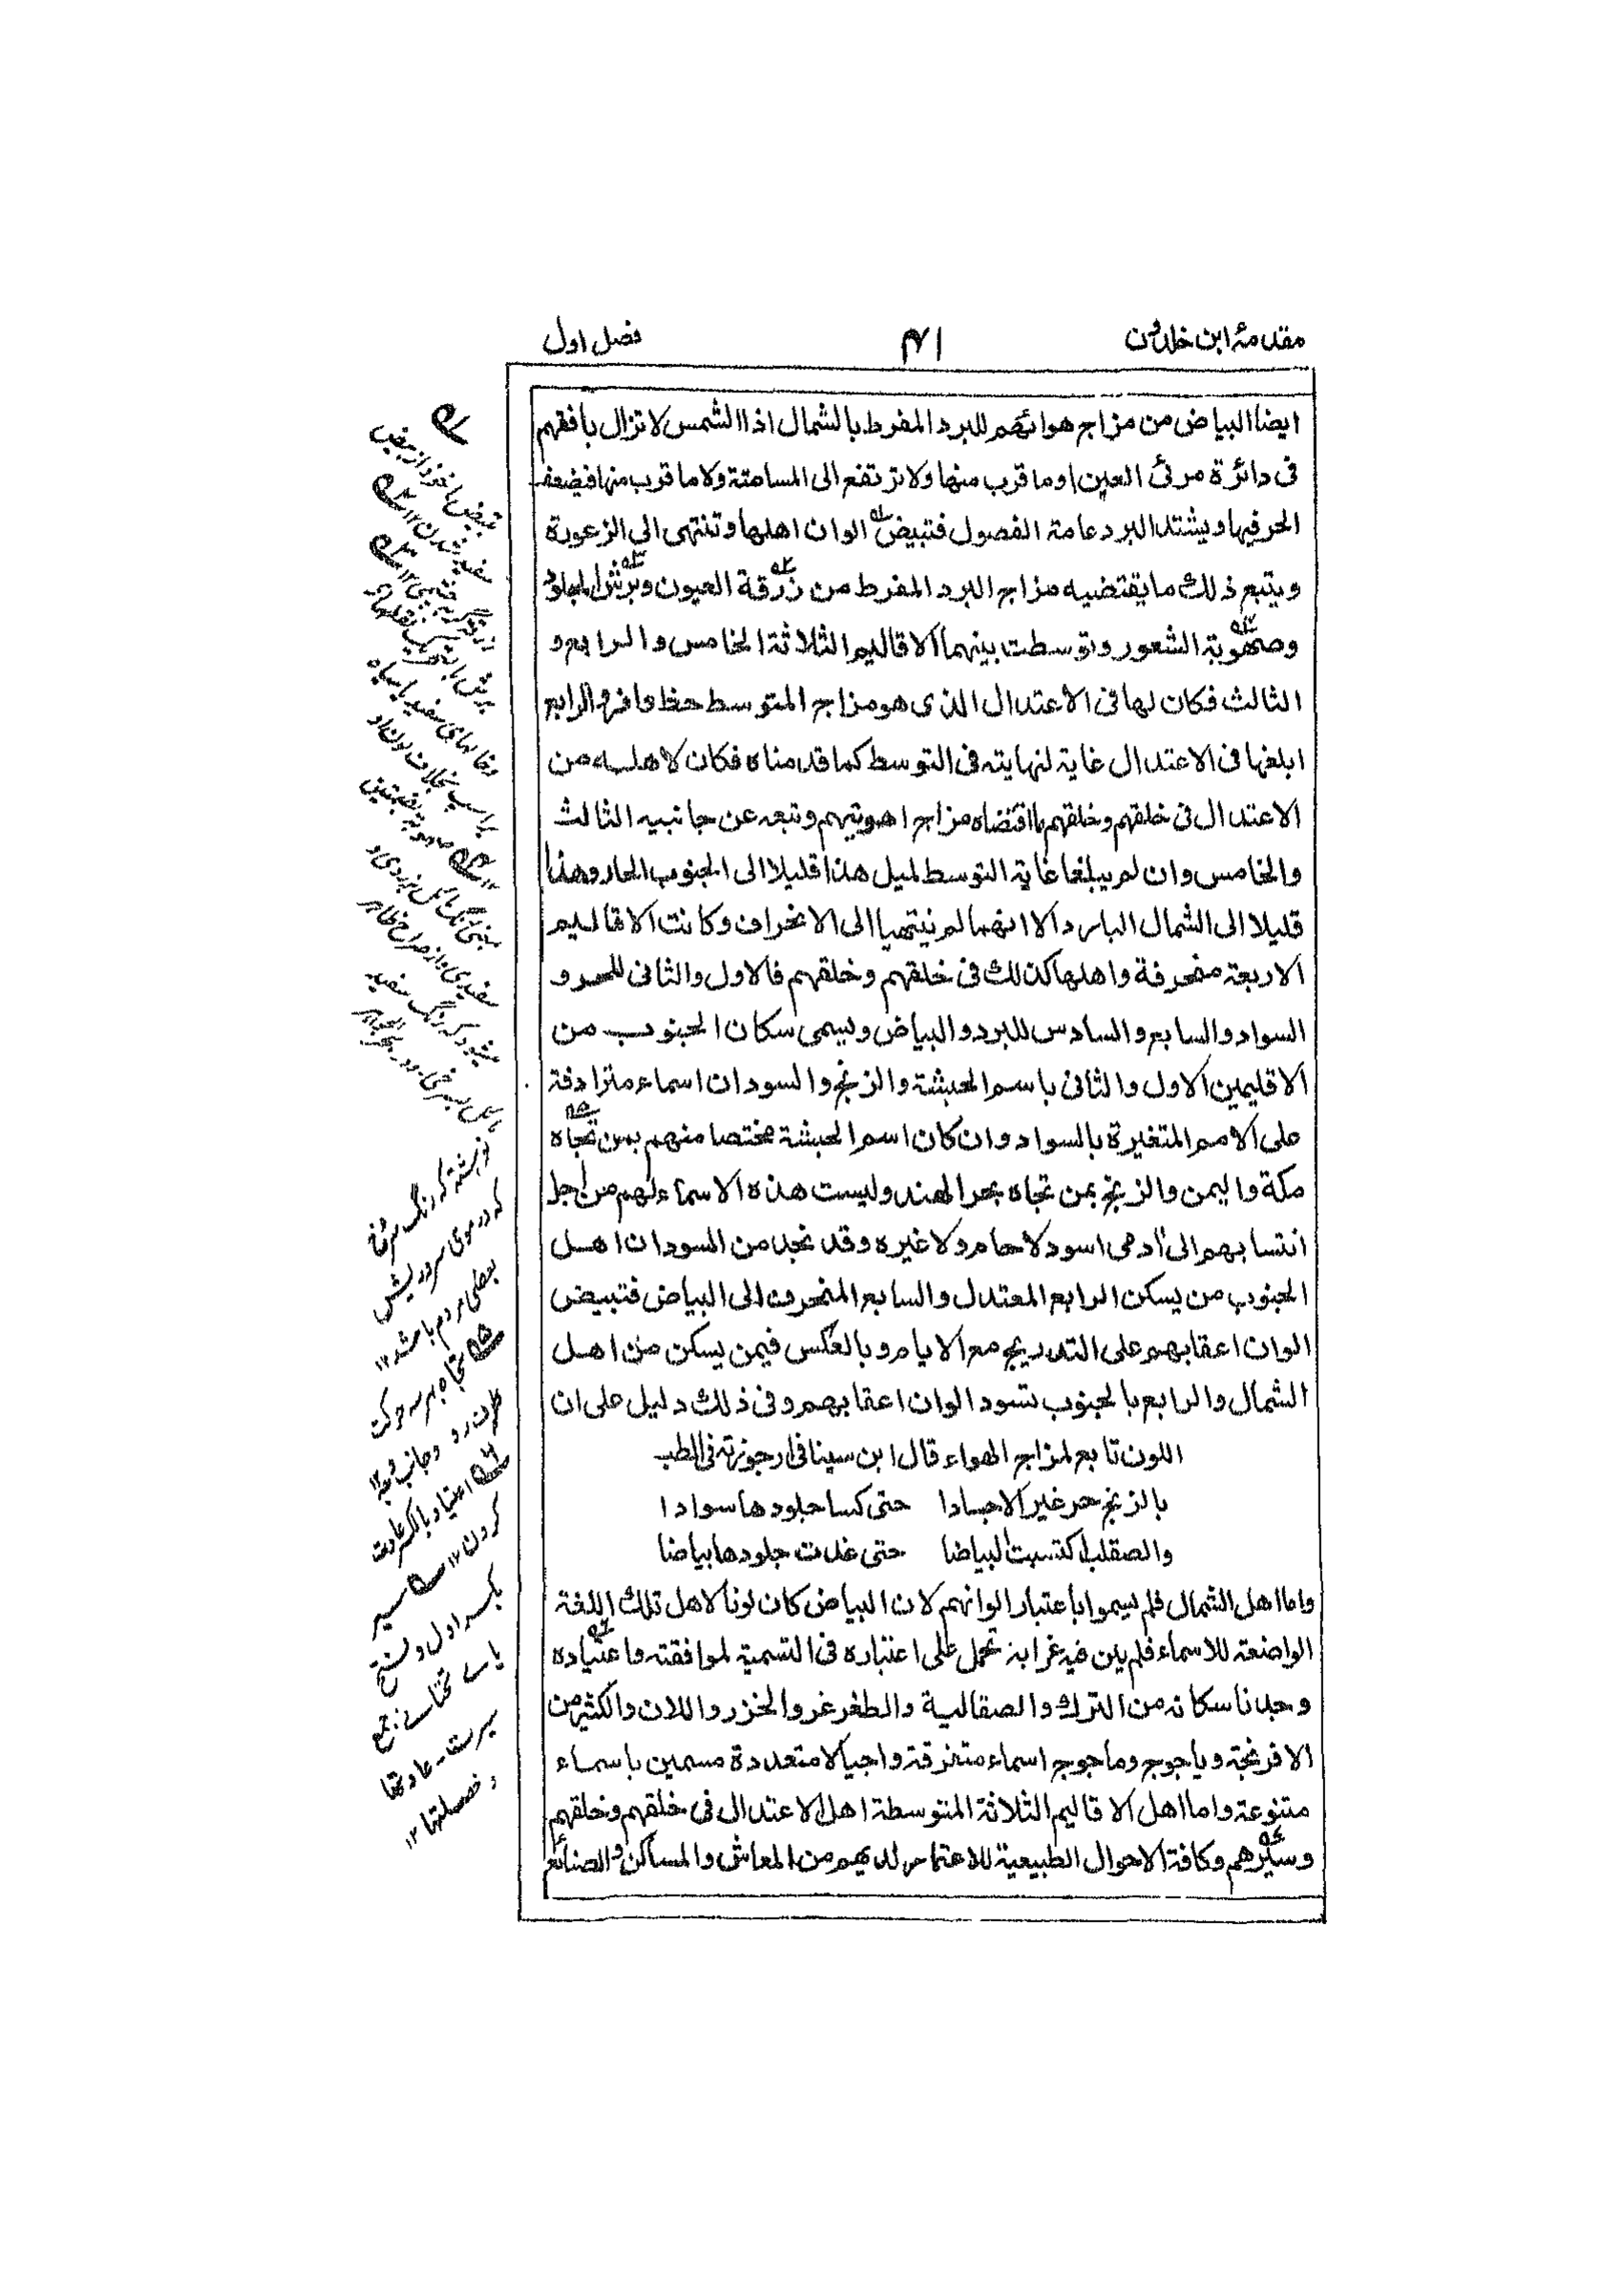 مقدمۂ ابن خلدون
۱۴۱
فصل اول
ايضا البياض من مزاج هوائهم للبرد المفرط بالشمال اذا الشمس لا تزال بافقهم
فى دائرة مرئى العين او ما قرب منها ولا ترتفع الى المسامتة ولا ما قرب منها فيضعف
الحر فيها ويشتد البرد عامة الفصول فتبيض الوان اهلها وتنتهى الى الزعورة
ويتبع ذلك ما يقتضيه مزاج البرد المفرط من زرقة العيون وبرش الجلود
وصهوبة الشعور وتوسطت بينهما الاقاليم الثلاثة الخامس والرابع و
الثالث فكان لها فى الاعتدال الذى هو مزاج المتوسط حظ وافر والرابع
ابلغها فى الاعتدال غاية لنهايته فى التوسط كما قدمناه فكان لاهله من
الاعتدال فى خلقهم وخلقهم ما اقتضاه مزاج اهويتهم وتبعه عن جانبيه الثالث
والخامس وان لم يبلغا غاية التوسط لميل هذا قليلا الى الجنوب الحار وهذا
قليلا الى الشمال البارد الا انهما لم ينتهيا الى الانحراف وكانت الاقاليم
الاربعة منحرفة واهلها كذلك فى خلقهم وخلقهم فالاول والثانى للحر و
السواد والسابع والسادس للبرد والبياض ويسمى سكان الجنوب من
الاقليمين الاول والثانى باسم الحبشة والزنج والسودان اسماء مترادفة
على الامم المتغيرة بالسواد وان كان اسم الحبشة مختصا منهم بمن تجاه
مكة واليمن والزنج بمن تجاه بحر الهند وليست هذه الاسماء لهم من اجل
انتسابهم الى آدمى اسود لا حام ولا غيره وقد نجد من السودان اهل
الجنوب من يسكن الرابع المعتدل والسابع المنحرف الى البياض فتبيض
الوان اعقابهم على التدريج مع الايام وبالعكس فيمن يسكن من اهل
الشمال والرابع بالجنوب تسود الوان اعقابهم وفى ذلك دليل على ان
اللون تابع لمزاج الهواء قال ابن سينا فى ارجوزته فى الطب
بالزنج حر غير الاجسادا حتى كسا جلودها سوادا
والصقلب اكتسبت البياضا حتى غدت جلودها بياضا
واما اهل الشمال فلم يسموا باعتبار الوانهم لان البياض كان لونا لاهل تلك اللغة
الواضعة للاسماء فلم يكن فيه غرابة تحمل على اعتباره فى التسمية لموافقته واعتياده
وجدنا سكانه من الترك والصقالبة والطغرغر والخزر واللان والكثير من
الافرنجة وياجوج وماجوج اسماء متفرقة واجيالا متعددة مسمين باسماء
متنوعة واما اهل الاقاليم الثلاثة المتوسطة اهل الاعتدال فى خلقهم وخلقهم
وسيرهم وكافة الاحوال الطبيعية للاعتمار لديهم من المعاش والمساكن والصنائع
تبيض ماخوذ از بيض
سفيد شدن ۱۲
نوشته كه رنگ سرخ
كه در موى سر و ريش
بعضى مردم باشد ۱۲
تجاه بهر سه حركت
طرف رو وجانب وجه ۱۲
اعتياد بالكسر عادت
كردن ۱۲ سير
بكسر اول و فتح
ياى تحتانى جمع
سيرت - عادتها
و خصلتها ۱۲